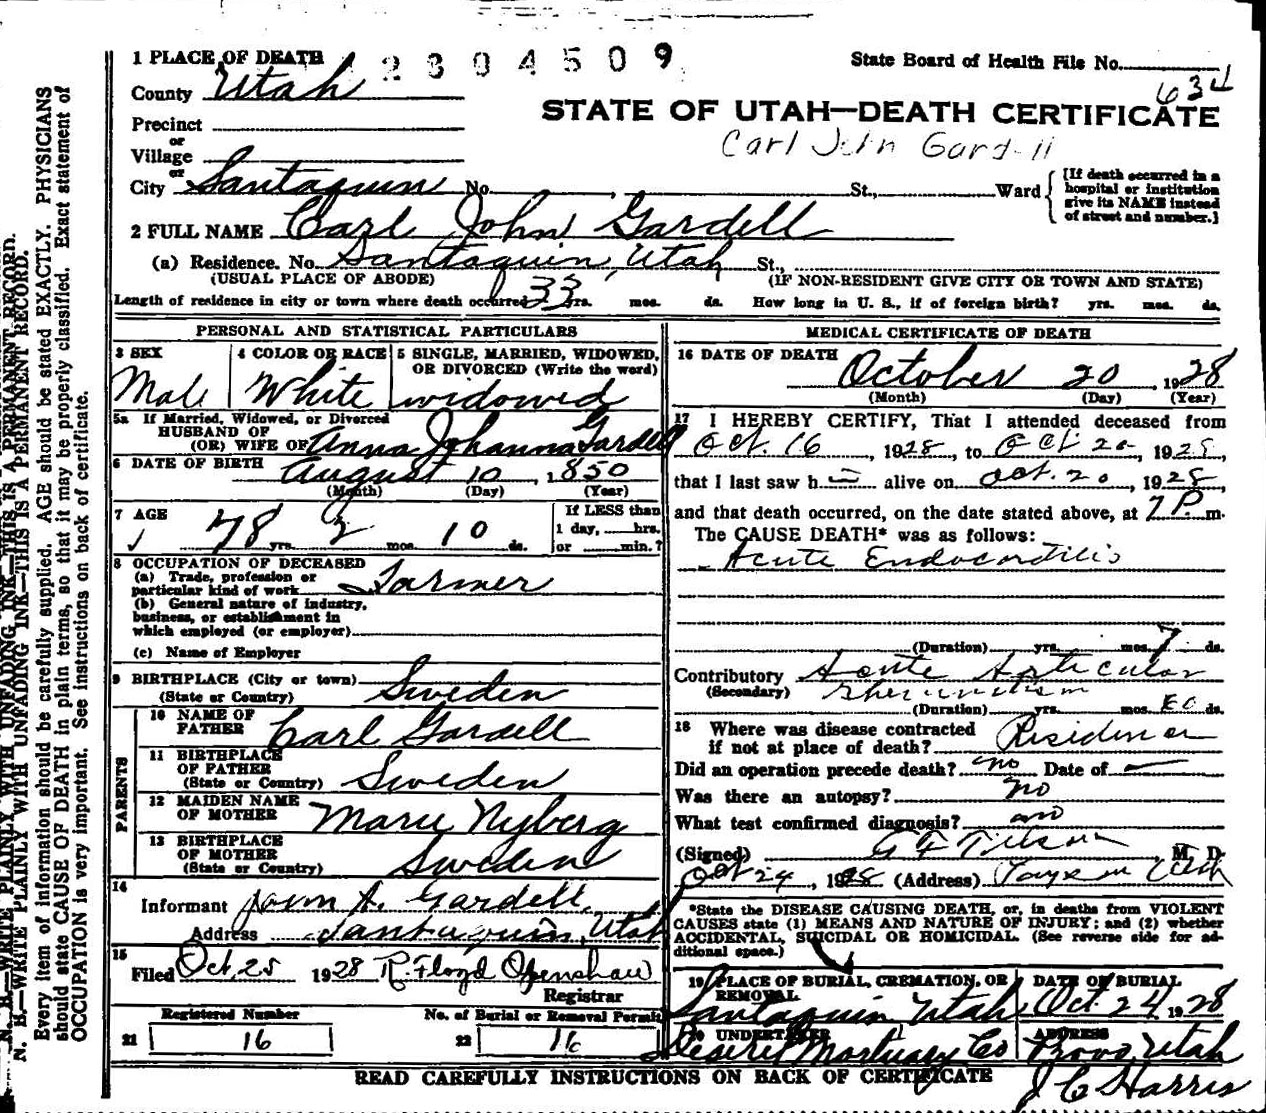 2304509
State Board of Health File No. 634
STATE OF UTAH—DEATH CERTIFICATE
Carl John Gardell
1 PLACE OF DEATH
County Utah
Precinct
or
Village
or
City Santaquin No. St., Ward
[If death occurred in a
hospital or institution
give its NAME instead
of street and number.]
2 FULL NAME Carl John Gardell
(a) Residence. No. Santaquin, Utah St.,
(USUAL PLACE OF ABODE) (IF NON-RESIDENT GIVE CITY OR TOWN AND STATE)
Length of residence in city or town where death occurred 33 yrs. mos. ds. How long in U. S., if of foreign birth? yrs. mos. ds.
PERSONAL AND STATISTICAL PARTICULARS
3 SEX
Male
4 COLOR OR RACE
White
5 SINGLE, MARRIED, WIDOWED,
OR DIVORCED (Write the word)
widowed
5a If Married, Widowed, or Divorced
HUSBAND OF
(OR) WIFE OF Anna Johanna Gardell
6 DATE OF BIRTH August 10, 1850
(Month) (Day) (Year)
7 AGE 78 yrs. 2 mos. 10 ds.
If LESS than
1 day, hrs.
or min.?
8 OCCUPATION OF DECEASED
(a) Trade, profession or
particular kind of work Farmer
(b) General nature of industry,
business, or establishment in
which employed (or employer)
(c) Name of Employer
9 BIRTHPLACE (City or town)
(State or Country) Sweden
PARENTS
10 NAME OF
FATHER Carl Gardell
11 BIRTHPLACE
OF FATHER
(State or Country) Sweden
12 MAIDEN NAME
OF MOTHER Marie Nyberg
13 BIRTHPLACE
OF MOTHER
(State or Country) Sweden
14
Informant John A. Gardell,
Address Santaquin, Utah
15
Filed Oct, 25 1928 R. Floyd Openshaw
Registrar
Registered Number
21 16
No. of Burial or Removal Permit
22 16
MEDICAL CERTIFICATE OF DEATH
16 DATE OF DEATH
October 20, 1928
(Month) (Day) (Year)
17 I HEREBY CERTIFY, That I attended deceased from
Oct. 16, 1928, to Oct 20, 1928,
that I last saw h alive on Oct. 20, 1928,
and that death occurred, on the date stated above, at 7 P. m.
The CAUSE DEATH* was as follows:
Acute Endocarditis
(Duration) yrs. mos. 7 ds.
Contributory Acute Articular
(Secondary) Rheumatism
(Duration) yrs. mos. ds.
18 Where was disease contracted
if not at place of death? Residence
Did an operation precede death? no Date of
Was there an autopsy? no
What test confirmed diagnosis?
(Signed) M. D.
Oct 24, 1928 (Address) Payson Utah
*State the DISEASE CAUSING DEATH, or, in deaths from VIOLENT
CAUSES state (1) MEANS AND NATURE OF INJURY; and (2) whether
ACCIDENTAL, SUICIDAL OR HOMICIDAL. (See reverse side for ad-
ditional space.)
19 PLACE OF BURIAL, CREMATION, OR
REMOVAL
Santaquin Utah
DATE OF BURIAL
Oct. 24, 1928
20 UNDERTAKER
Deseret Mortuary Co
ADDRESS
Provo, Utah
J C Harris
READ CAREFULLY INSTRUCTIONS ON BACK OF CERTIFICATE
N. B.—WRITE PLAINLY WITH UNFADING INK—THIS IS A PERMANENT RECORD.
N. B.—WRITE PLAINLY WITH UNFADING INK—THIS IS A PERMANENT RECORD.
Every item of information should be carefully supplied. AGE should be stated EXACTLY. PHYSICIANS
should state CAUSE OF DEATH in plain terms, so that it may be properly classified. Exact statement of
OCCUPATION is very important. See instructions on back of certificate.